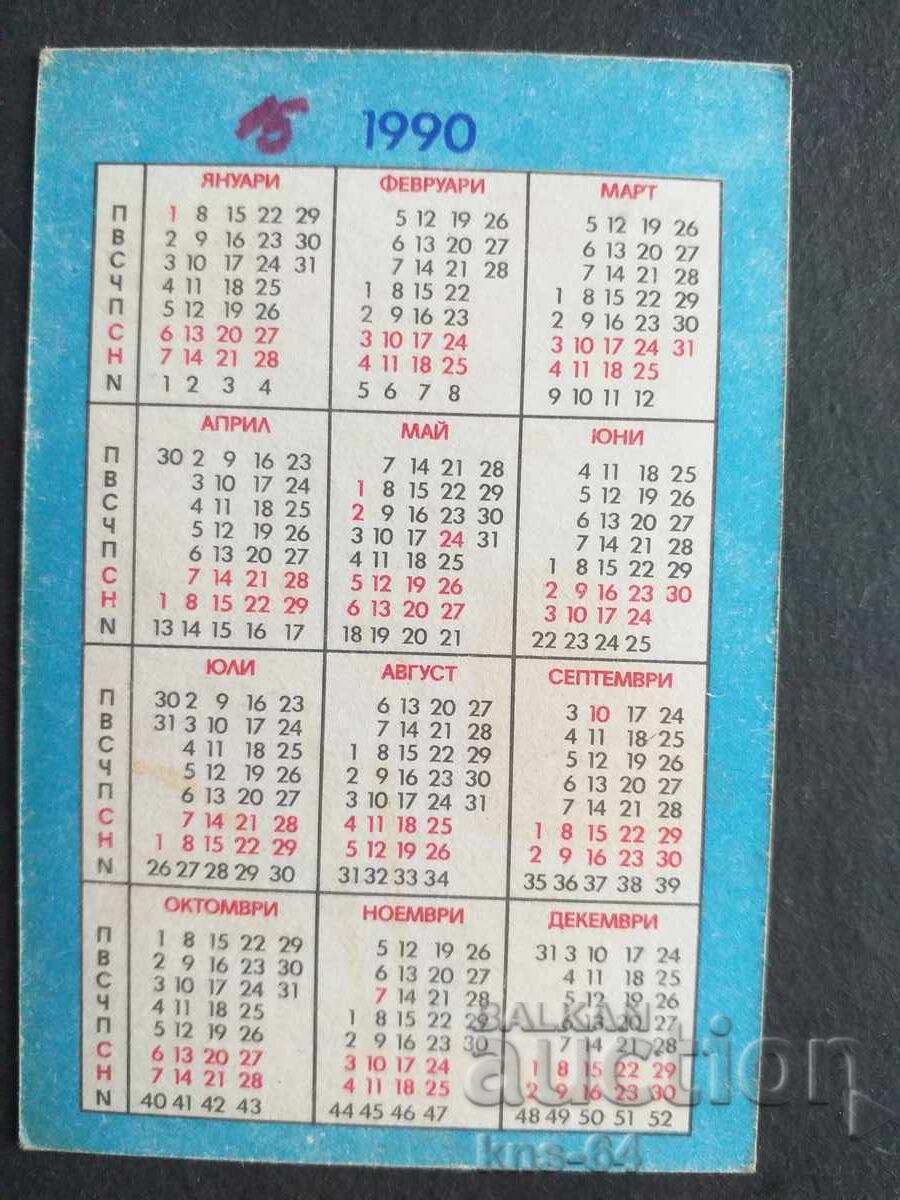 15 1990
ЯНУАРИ ФЕВРУАРИ МАРТ
П 1 8 15 22 29 5 12 19 26 5 12 19 26
В 2 9 16 23 30 6 13 20 27 6 13 20 27
С 3 10 17 24 31 7 14 21 28 7 14 21 28
Ч 4 11 18 25 1 8 15 22 1 8 15 22 29
П 5 12 19 26 2 9 16 23 2 9 16 23 30
С 6 13 20 27 3 10 17 24 3 10 17 24 31
Н 7 14 21 28 4 11 18 25 4 11 18 25
N 1 2 3 4 5 6 7 8 9 10 11 12
АПРИЛ МАЙ ЮНИ
П 30 2 9 16 23 7 14 21 28 4 11 18 25
В 3 10 17 24 1 8 15 22 29 5 12 19 26
С 4 11 18 25 2 9 16 23 30 6 13 20 27
Ч 5 12 19 26 3 10 17 24 31 7 14 21 28
П 6 13 20 27 4 11 18 25 1 8 15 22 29
С 7 14 21 28 5 12 19 26 2 9 16 23 30
Н 1 8 15 22 29 6 13 20 27 3 10 17 24
N 13 14 15 16 17 18 19 20 21 22 23 24 25
ЮЛИ АВГУСТ СЕПТЕМВРИ
П 30 2 9 16 23 6 13 20 27 3 10 17 24
В 31 3 10 17 24 7 14 21 28 4 11 18 25
С 4 11 18 25 1 8 15 22 29 5 12 19 26
Ч 5 12 19 26 2 9 16 23 30 6 13 20 27
П 6 13 20 27 3 10 17 24 31 7 14 21 28
С 7 14 21 28 4 11 18 25 1 8 15 22 29
Н 1 8 15 22 29 5 12 19 26 2 9 16 23 30
N 26 27 28 29 30 31 32 33 34 35 36 37 38 39
ОКТОМВРИ НОЕМВРИ ДЕКЕМВРИ
П 1 8 15 22 29 5 12 19 26 31 3 10 17 24
В 2 9 16 23 30 6 13 20 27 4 11 18 25
С 3 10 17 24 31 7 14 21 28 5 12 19 26
Ч 4 11 18 25 1 8 15 22 29 6 13 20 27
П 5 12 19 26 2 9 16 23 30 7 14 21 28
С 6 13 20 27 3 10 17 24 1 8 15 22 29
Н 7 14 21 28 4 11 18 25 2 9 16 23 30
N 40 41 42 43 44 45 46 47 48 49 50 51 52
BALKAN
auction
kns-64